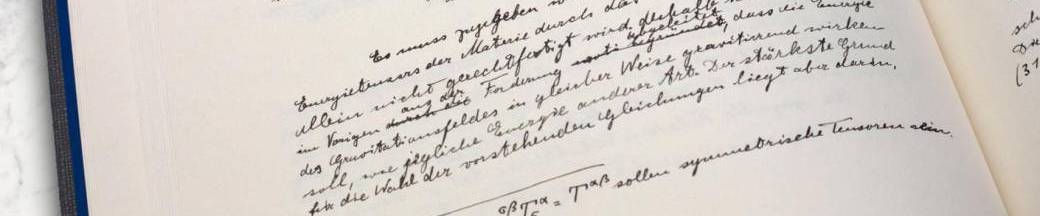 Es muss zugegeben
Energietensors der Materie durch das
allein nicht gerechtfertigt wird, deshalb
im Vorigen durch die aus der Forderung abgeleitet, dass die Energie
des Gravitationsfeldes in gleicher Weise gravitierend wirken
soll, wie jegliche Energie anderer Art. Der stärkste Grund
für die Wahl der vorstehenden Gleichungen liegt aber darin,
= Tαβ sollen symmetrische Tensoren sein.
(31